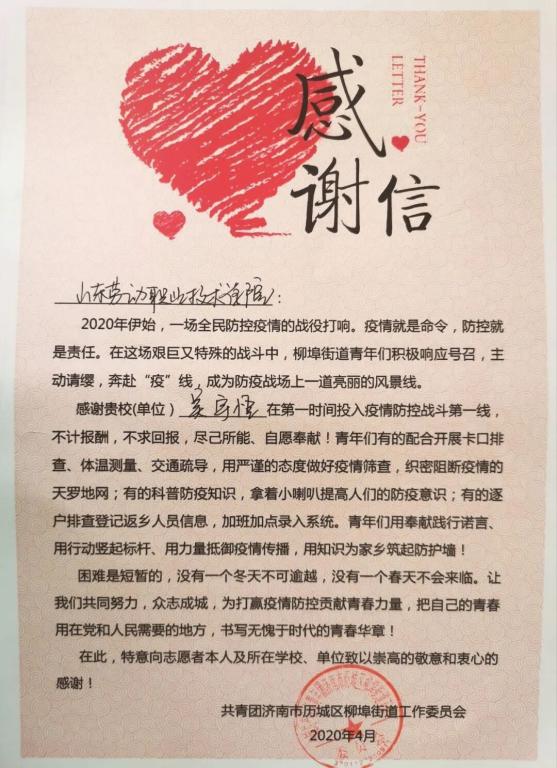 感谢信
THANK-YOU
LETTER
山东劳动职业技术学院：
2020年伊始，一场全民防控疫情的战役打响。疫情就是命令，防控就
是责任。在这场艰巨又特殊的战斗中，柳埠街道青年们积极响应号召，主
动请缨，奔赴“疫”线，成为防疫战场上一道亮丽的风景线。
感谢贵校(单位）在第一时间投入疫情防控战斗第一线，
不计报酬，不求回报，尽己所能、自愿奉献！青年们有的配合开展卡口排
查、体温测量、交通疏导，用严谨的态度做好疫情筛查，织密阻断疫情的
天罗地网；有的科普防疫知识，拿着小喇叭提高人们的防疫意识；有的逐
户排查登记返乡人员信息，加班加点录入系统。青年们用奉献践行诺言、
用行动竖起标杆、用力量抵御疫情传播，用知识为家乡筑起防护墙！
困难是短暂的，没有一个冬天不可逾越，没有一个春天不会来临。让
我们共同努力，众志成城，为打赢疫情防控贡献青春力量，把自己的青春
用在党和人民需要的地方，书写无愧于时代的青春华章！
在此，特意向志愿者本人及所在学校、单位致以崇高的敬意和衷心的
感谢！
共青团济南市历城区柳埠街道工作委员会
2020年4月